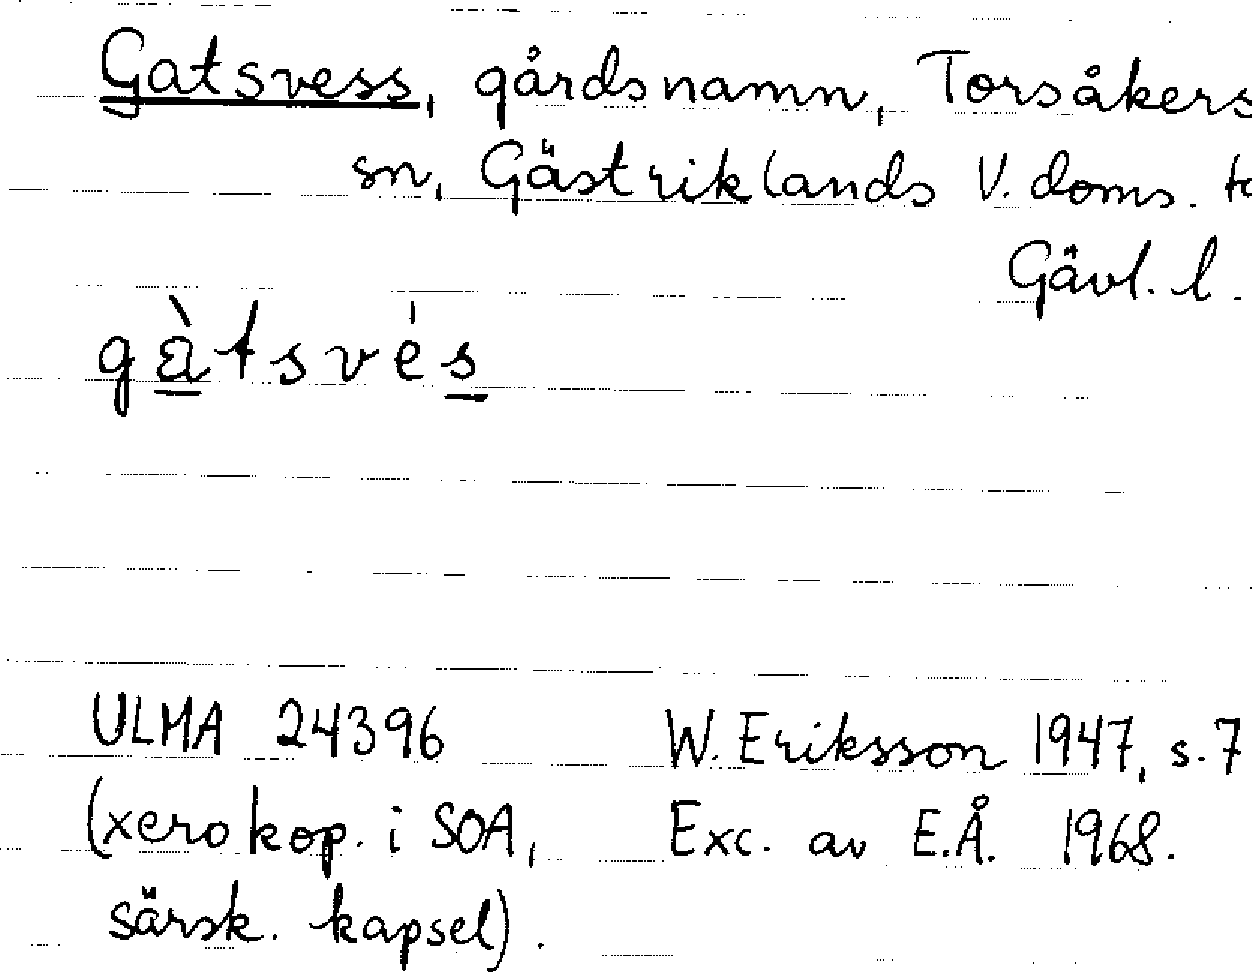 Gatsvess, gårdsnamn, Torsåkers
sn, Gästriklands V. doms.
Gävl. l.
gàtsvés
ULMA 24396 W. Eriksson 1947, s. 7
(xerokop. i SOA, Exc. av E.Å. 1968.
särsk. kapsel).